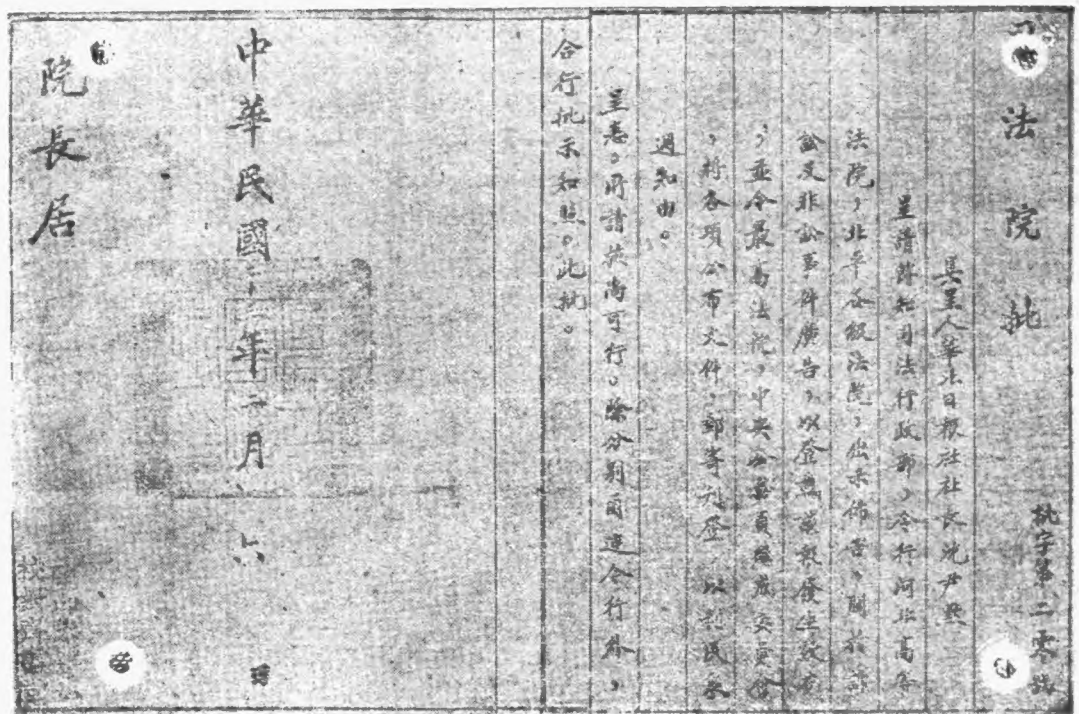 法院批
批字第二零號
具呈人華北日報社社長沈尹默
呈請轉知司法行政部，令行河北高等
法院，北平各級法院，出示佈告，關於訴
訟及非訟事件廣告，以登載該報發生效力
，並令最高法院，中央公務員懲戒委員會
，將各項公布文件，郵寄刊登，以利民衆
週知由。
呈悉。所請核尚可行。除分別函達令行外，
合行批示知照。此批。
中華民國年月六
院長居